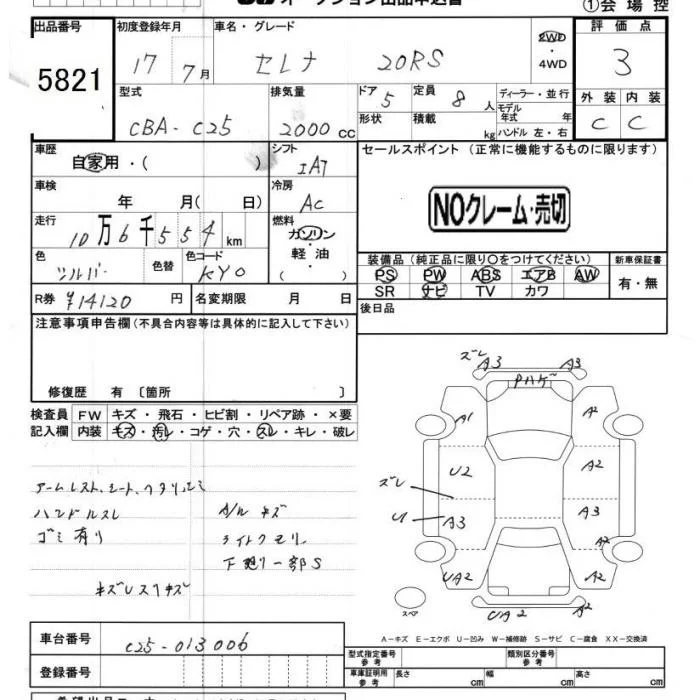 オークション出品申込書
①会場控
出品番号 初度登録年月 車名・グレード 評価点
5821 17年 7月 セレナ 20RS 2WD・4WD 3
型式 排気量 ドア 5 定員 8人 ディーラー・並行 外装 内装
CBA-C25 2000cc 形状 積載 kg モデル年式 年 ハンドル 左・右 C C
車歴 自家用・( ) シフト IAT セールスポイント (正常に機能するものに限ります)
車検 年 月( 日) 冷房 AC
NOクレーム・売切
走行 10万6千554km 燃料 ガソリン・軽油・( )
色 シルバー 色替 色コード KY0
装備品 (純正品に限り○をつけてください) 新車保証書
PS PW ABS エアB AW 有・無
SR ナビ TV カワ
R券 ¥14120円 名変期限 月 日 後日品
注意事項申告欄(不具合内容等は具体的に記入して下さい)
修復歴 有 〔箇所 〕
検査員記入欄 FW キズ・飛石・ヒビ割・リペア跡・×要
内装 キズ・汚レ・コゲ・穴・スレ・キレ・破レ
アームレスト、シート、ヘタリ
ハンドルスレ A/W キズ
ゴミ有り ライトクモリ
下廻り一部S
ズレ A3 A3
Pハゲ
A1 A2
U2 A2
ズレ
U A3 A3
A2
UA2 A2
UA2
スペア
A-キズ E-エクボ U-凹み W-補修跡 S-サビ C-腐食 XX-交換済
車台番号 C25-013006
型式指定番号 参考 類別区分番号 参考
登録番号 車庫証明用 参考 長さ cm 幅 cm 高さ cm